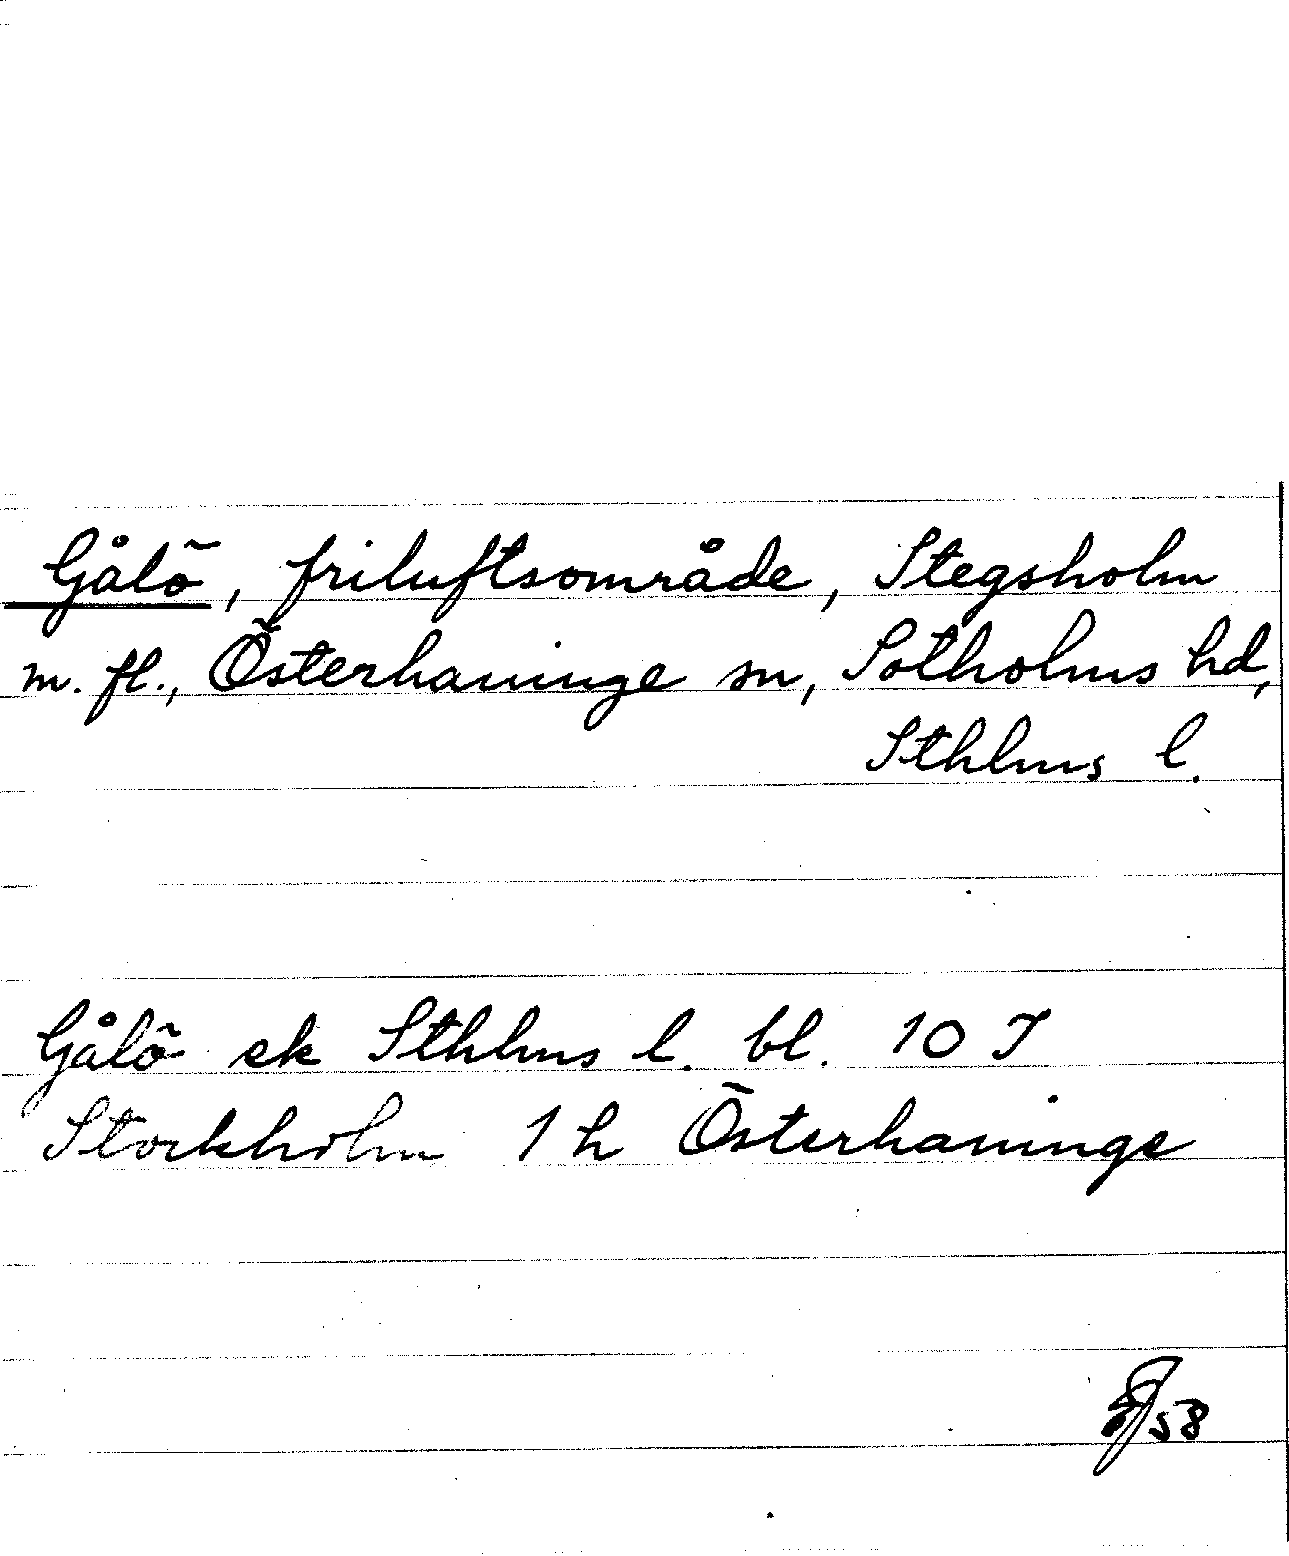 Gålö, friluftsområde, Stegsholm
m. fl., Österhaninge sn, Sotholms hd,
Sthlms l.
Gålö ek Sthlms l. bl. 10 I
Stockholm 1 h Österhaninge
58